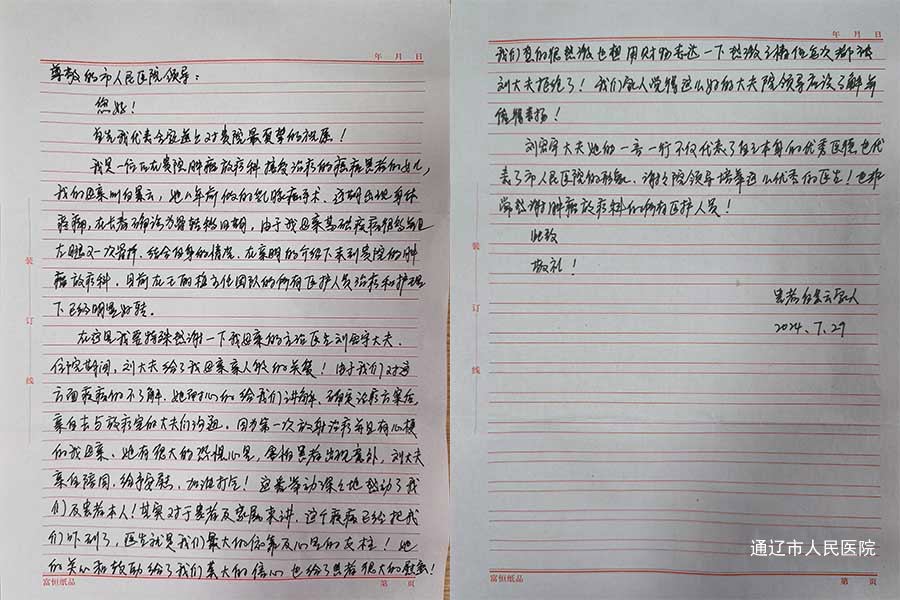 年 月 日
尊敬的市人民医院领导：
您好！
首先我代表全家送上对贵院最真挚的祝愿！
我是一位在贵院肿瘤放疗科接受治疗的癌症患者的女儿，
我的母亲叫白云，她八年前做的乳腺癌手术，近期出现身体
疼痛，在长春确诊为骨转移，由于我母亲基础疾病
左腿又一次骨折，结合自身的情况，在亲朋的介绍下来到贵院的肿
瘤放疗科，目前在王丽植主任团队的所有医护人员治疗和护理
下已经明显好转。
在这里我要特殊感谢一下我母亲的主治医生刘宇大夫，
住院期间，刘大夫给了我母亲亲人般的关爱！由于我们对这
方面疾病的不了解，她耐心的给我们讲解，确定治疗方案后
亲自去与放疗室的大夫们沟通。因为第一次放射治疗并且有心梗
的我母亲，她有很大的恐惧心里，害怕患者出现意外，刘大夫
亲自陪同，给予安慰，加油打气！这番举动深深地感动了我
们及患者本人！其实对于患者及家属来讲，这个疾病已经把我
们吓到了，医生就是我们最大的依靠及心里的支柱！她
的关心和鼓励给了我们莫大的信心也给了患者很大的慰藉！
富恒纸品 第 页
装
订
线
年 月 日
我们真的很感激也想用财物表达一下感激之情但每次都被
刘大夫拒绝了！我们家人觉得这么好的大夫院领导应该了解与
值得表扬！
刘宇大夫她的一言一行不仅代表了自己本身的优秀医德也代
表了市人民医院的形象，谢谢院领导培养这么优秀的医生！也非
常感谢肿瘤放疗科的所有医护人员！
此致
敬礼！
患者白云家人
2024.7.29
装
订
线
富恒纸品 第 页
通辽市人民医院